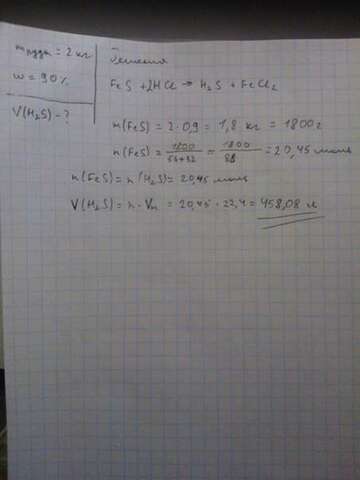 mруды = 2 кг
w = 90%
V(H₂S) - ?
Решение
FeS + 2HCl → H₂S + FeCl₂
m(FeS) = 2 · 0,9 = 1,8 кг = 1800 г
n(FeS) = 1800/56+32 = 1800/88 = 20,45 моль
n(FeS) = n(H₂S) = 20,45 моль
V(H₂S) = n · Vm = 20,45 · 22,4 = 458,08 л